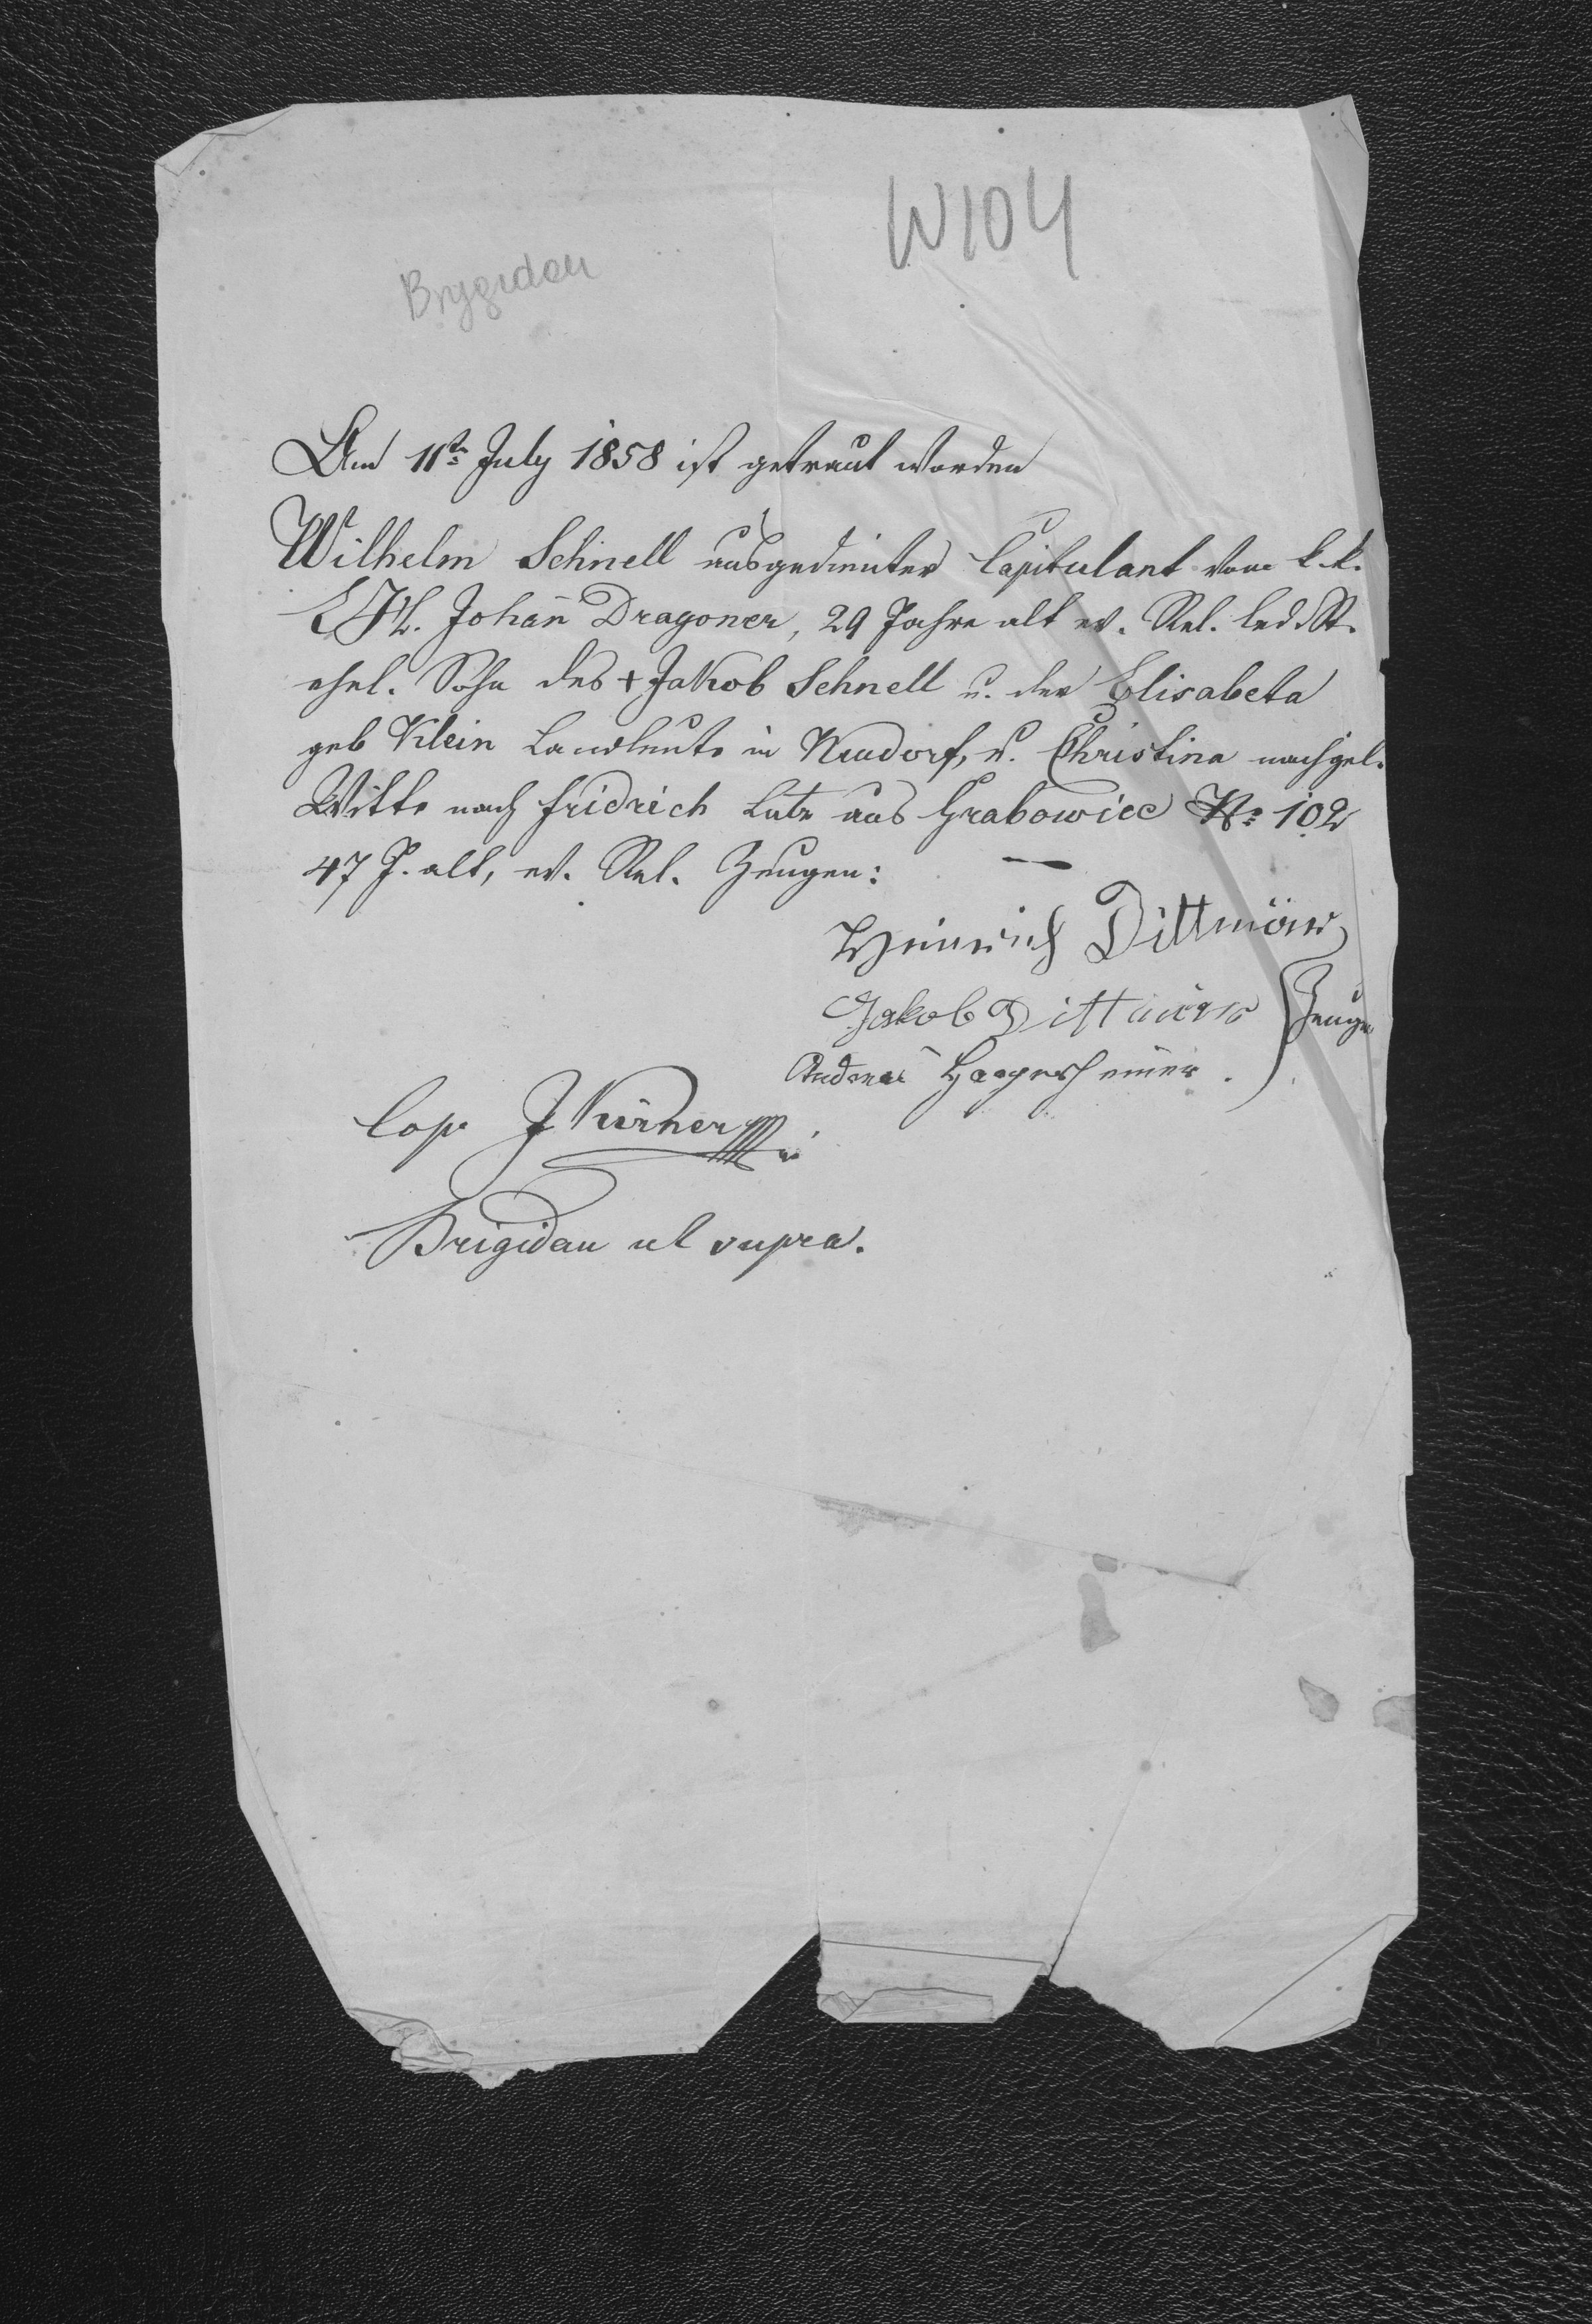 W104
Brygidau
Am 11t July 1858 ist getraut worden
Wilhelm Schnell ausgedienter Capitulant vom k.k.
EH. Johan̄ Dragoner, 29 Jahre alt ev. Rel. led. St.
ehel. Sohn des + Jakob Schnell u. der Elisabeta
geb Klein Landleute in Neudorf, u. Christina nachgel.
Witte nach Fridrich Lutz aus Grabowiec No 102
47 J. alt, ev. Rel. Zeugen: —
Heinrich Dittmör
Jakob Zeugen
Andreas
Cop. J Kürner
Brigidau ut supra.